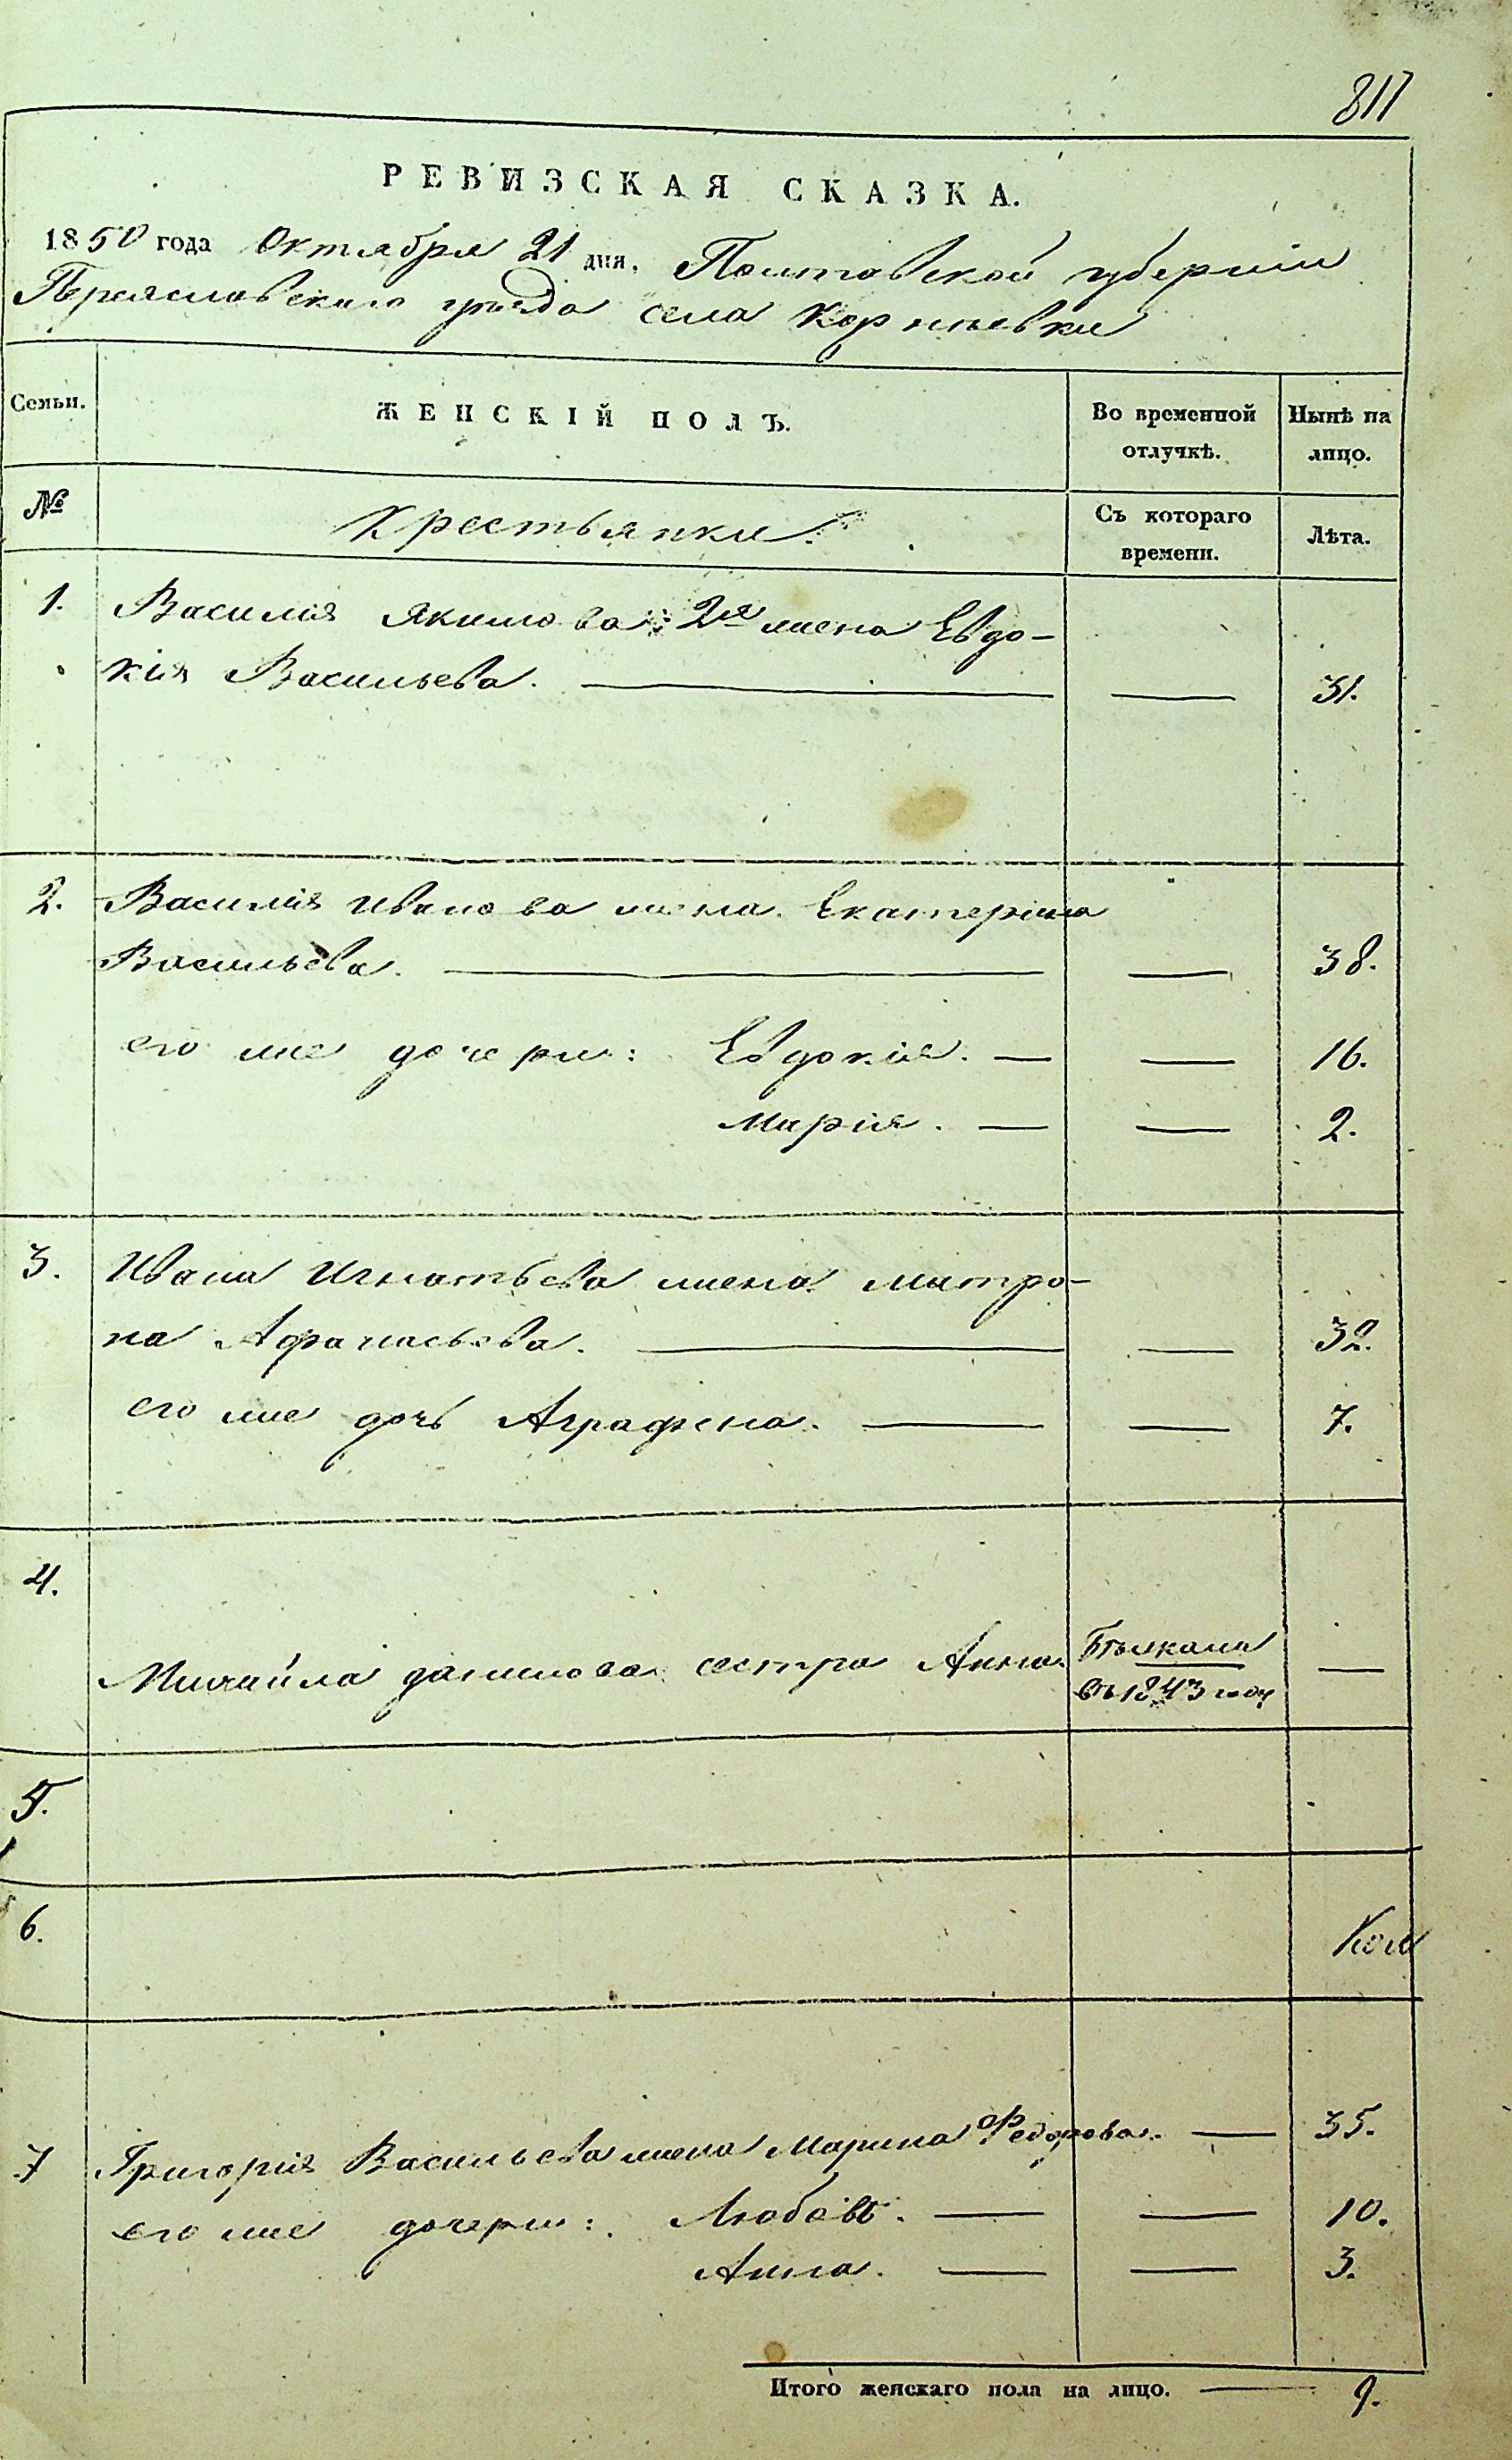 811
РЕВИЗСКАЯ СКАЗКА.
1850 года Октября 21 дня, Полтавской губерніи
Переяславскаго уѣзда села Корнѣевки
Семьи.
ЖЕНСКІЙ ПОЛЪ.
Во временной
отлучкѣ.
Нынѣ на
лицо.
№
Крестьянки.
Съ котораго
времени.
Лѣта.
1. Василія Якимова 2я жена Евдо-
кія Васильева. — — 31.
2. Василія Иванова жена Екатерина
Васильева. — — 38.
его же дочери: Евдокія. — — 16.
Марія. — — 2.
3. Ивана Игнатьева жена матро-
на Афанасьева. — — 32.
его же дочь Аграфена. — — 7.
4.
Михайла данилова сестра Анна. Бѣжала
въ 1843 году —
5.
6.
7 Григорія Васильева жена Марина Федорова. — 35.
его же дочери: Любовь. — — 10.
Анна. — — 3.
Итого женскаго пола на лицо. — 9.